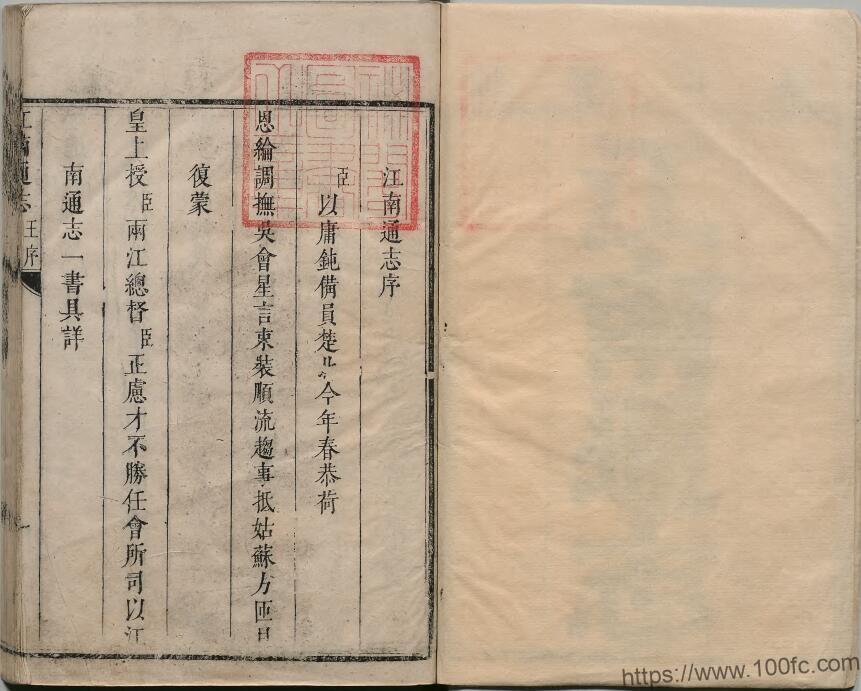 江南通志序
臣以庸鈍備員楚北今年春恭荷
恩綸調撫吳會星言束裝順流趨事抵姑蘇方匝月
復蒙
皇上授臣兩江總督臣正慮才不勝任會所司以江
南通志一書具詳
江南通志 王序
https://www.100fc.com